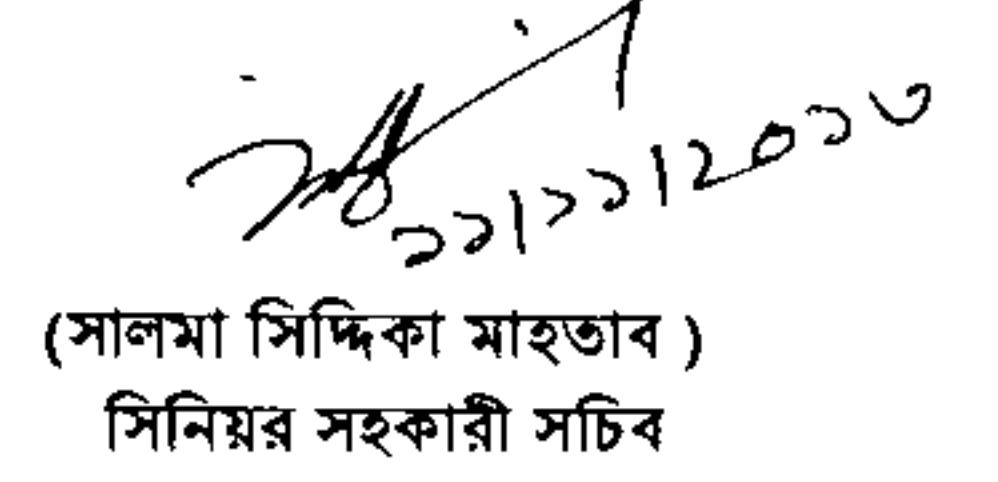 ১১|১১|২০১৩
(সালমা সিদ্দিকা মাহতাব )
সিনিয়র সহকারী সচিব